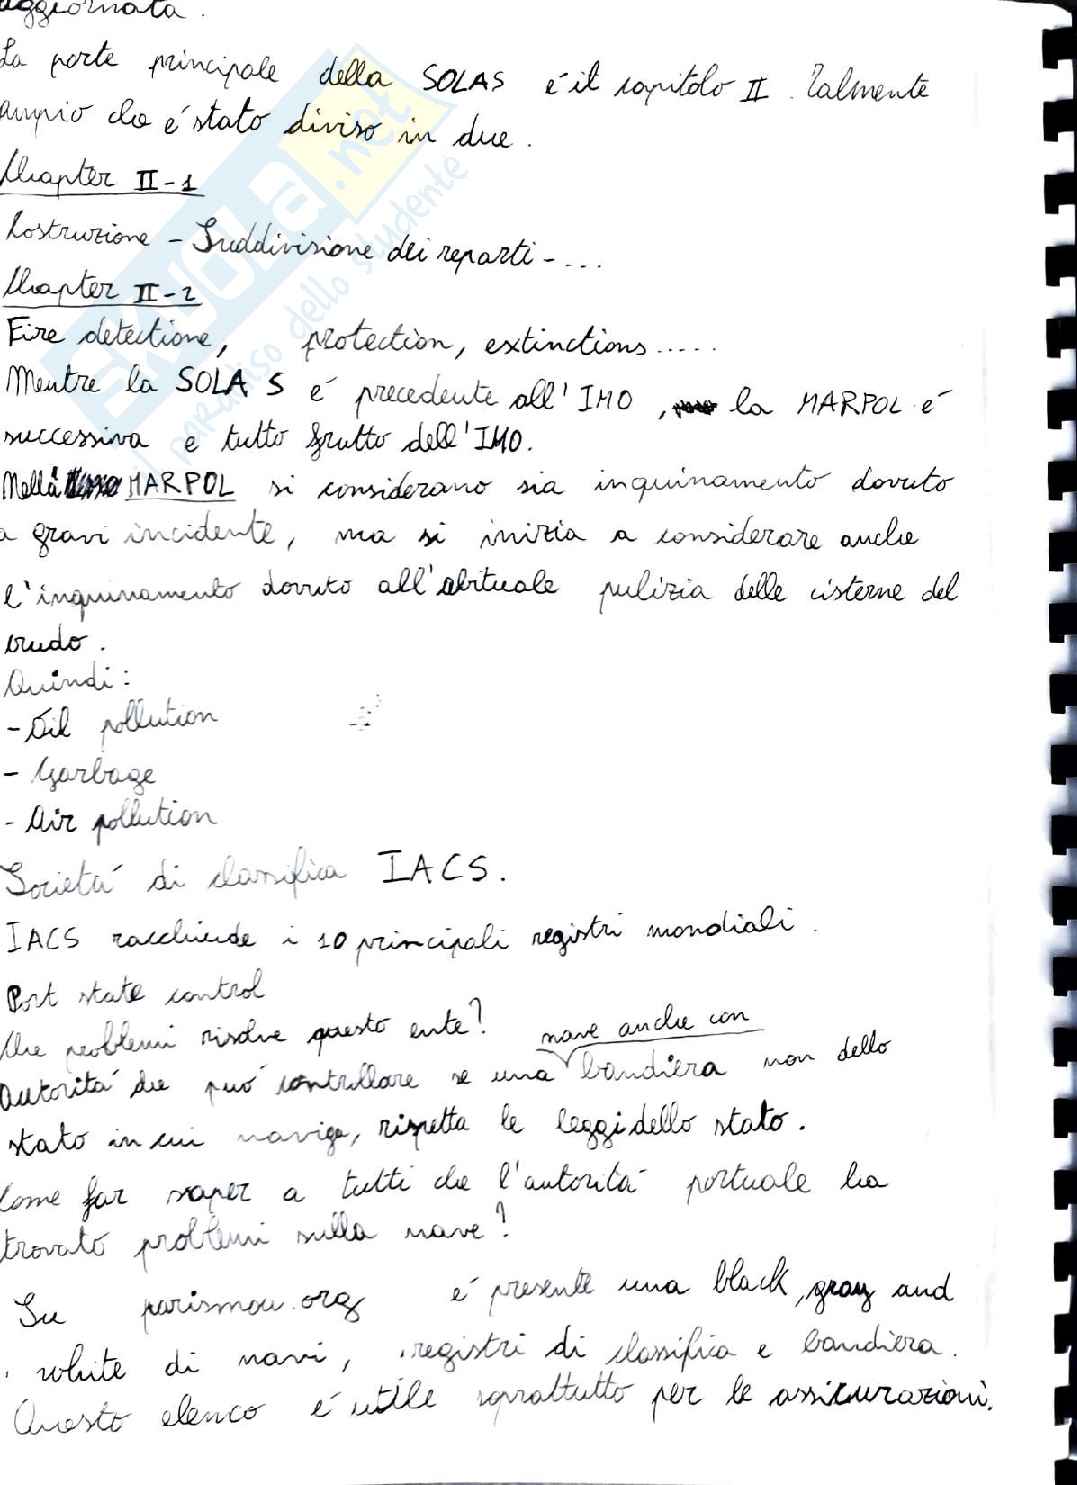 aggiornata.
La parte principale della SOLAS é il capitolo II. Talmente
ampio che é stato diviso in due.
Chapter II-1
Costruzione - Suddivisione dei reparti - ...
Chapter II-2
Fire detectione, protection, extinctions.....
Mentre la SOLAS é precedente all'IMO, la MARPOL é
successiva e tutto frutto dell'IMO.
Nella MARPOL si considerano sia inquinamento dovuto
a gravi incidente, ma si inizia a considerare anche
l'inquinamento dovuto all'abituale pulizia delle cisterne del
crudo.
Quindi:
- Oil pollution
- Garbage
- Air pollution
Societá di classifica IACS.
IACS racchiude i 10 principali registri mondiali.
Port state control
Che problemi risolve questo ente?
nave anche con
Autoritá che puó controllare se una bandiera non dello
stato in cui naviga, rispetta le leggi dello stato.
Come far saper a tutti che l'autoritá portuale ha
trovato problemi sulla nave?
Su parismou.org é presente una black, gray and
white di navi, registri di classifica e bandiera.
Questo elenco é utile soprattutto per le assicurazioni.
SKUOLA.net
il paradiso dello studente